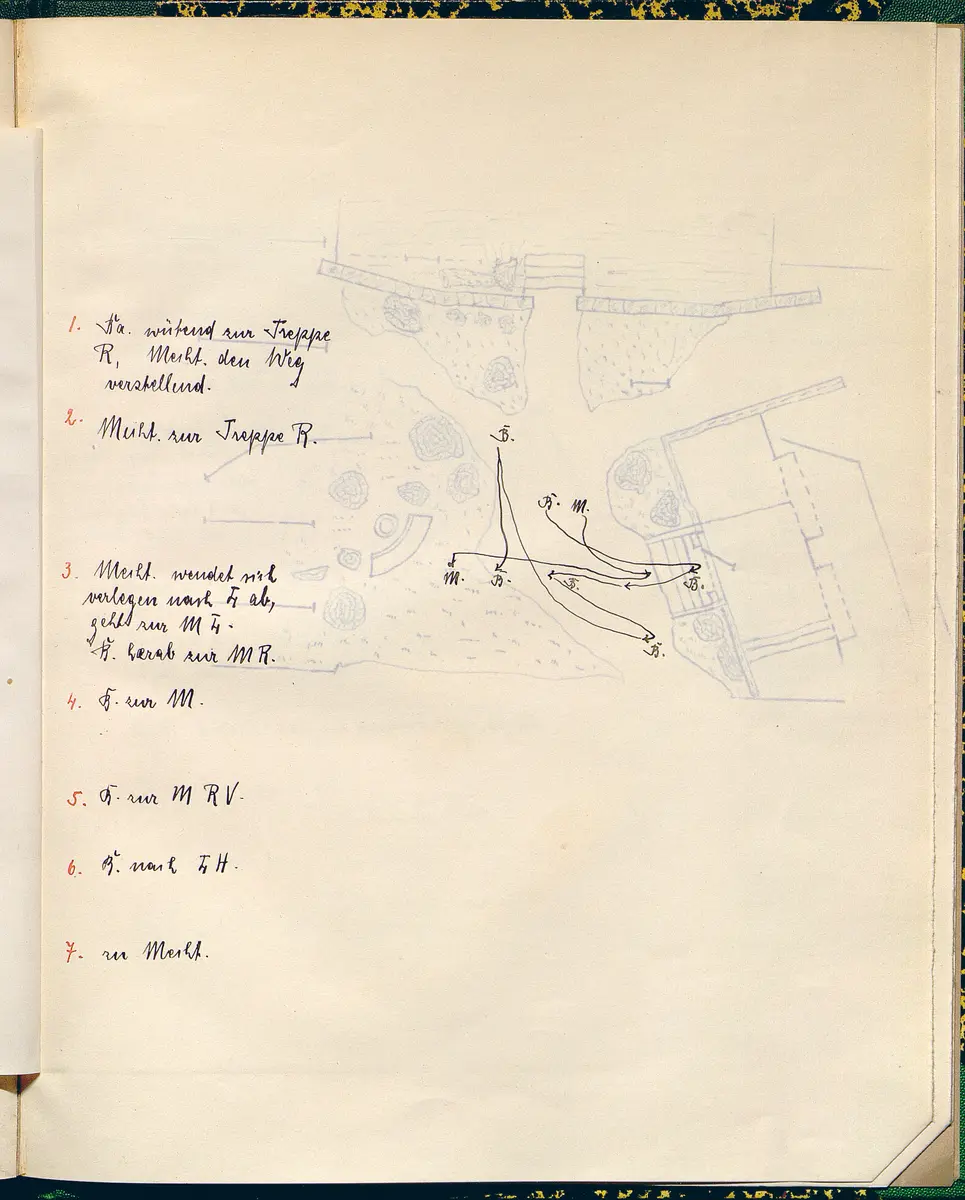 1. Ka. wütend zur Treppe
R, Mecht. den Weg
verstellend.
2. Mecht. zur Treppe R.
3. Mecht. wendet sich
verlegen nach L ab,
geht zur M L.
K. herab zur M R.
4. K. zur M.
5. K. zur M R V.
6. K. nach L H.
7. zu Mecht.
K.
K. M.
M. K. K. K.
K.